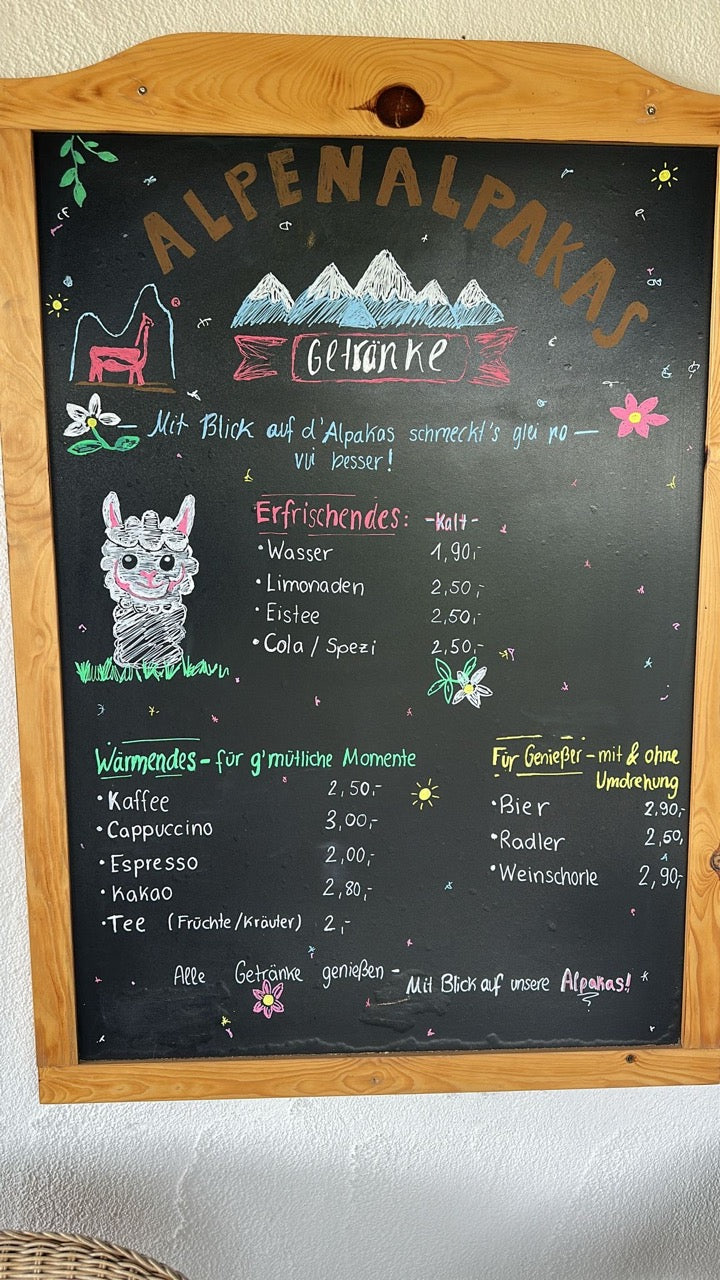 ALPENALPAKAS
®
Getränke
— Mit Blick auf d'Alpakas schmeckt's glei no —
vui besser!
Erfrischendes: -Kalt-
• Wasser 1,90,-
• Limonaden 2,50,-
• Eistee 2,50,-
• Cola / Spezi 2,50,-
Wärmendes - für g'mütliche Momente
• Kaffee 2,50,-
• Cappuccino 3,00,-
• Espresso 2,00,-
• Kakao 2,80,-
• Tee (Früchte/Kräuter) 2,-
Für Genießer - mit & ohne
Umdrehung
• Bier 2,90,-
• Radler 2,50,
• Weinschorle 2,90,-
Alle Getränke genießen - Mit Blick auf unsere Alpakas!